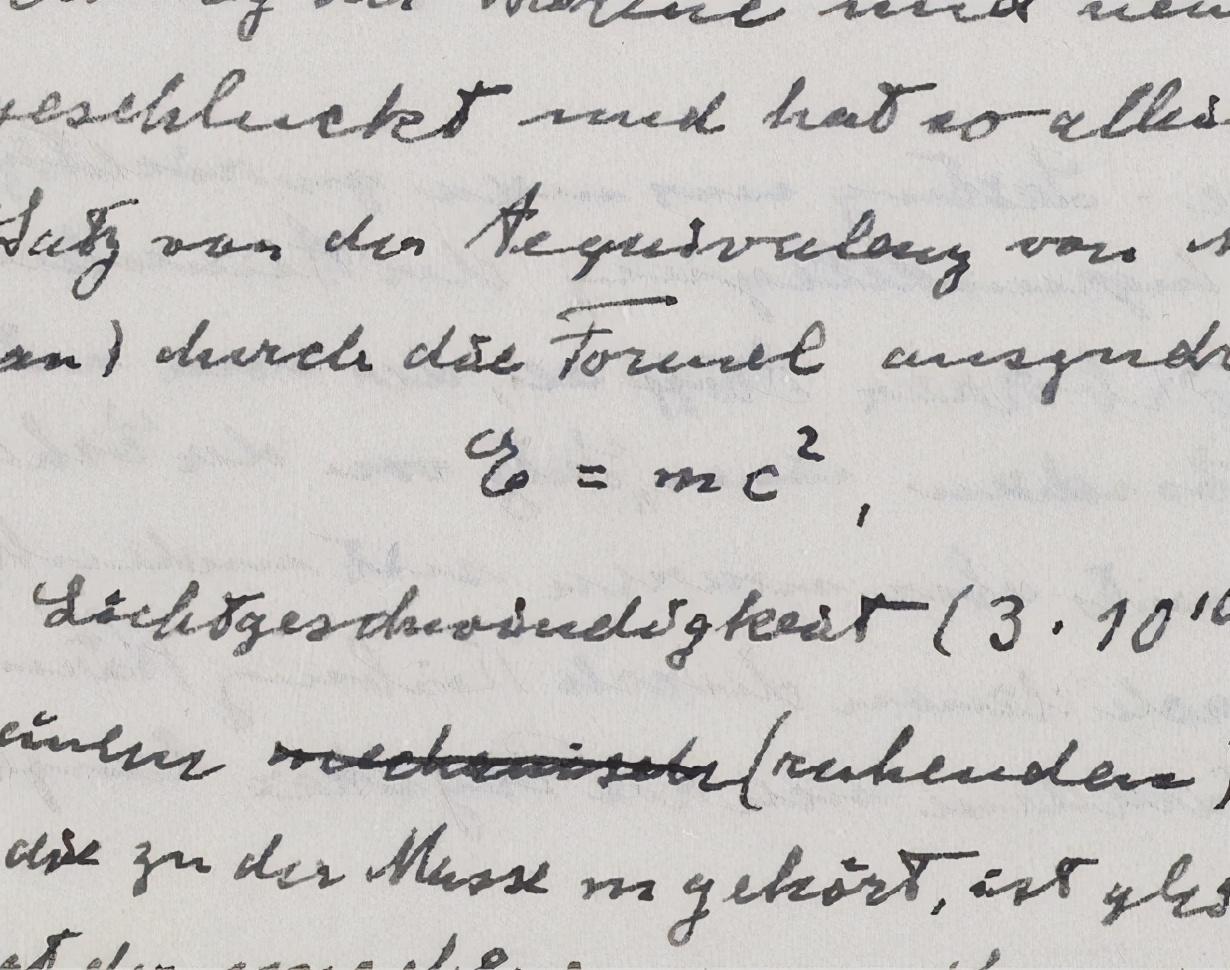 der Wärme und neu
geschluckt und hat so allei
Satz von der Aequivalenz von
durch die Formel auszudr
E = mc²,
Lichtgeschwindigkeit (3 · 10¹⁰
einem mechanisch (ruhenden)
die zu der Masse m gehört, ist glei
der